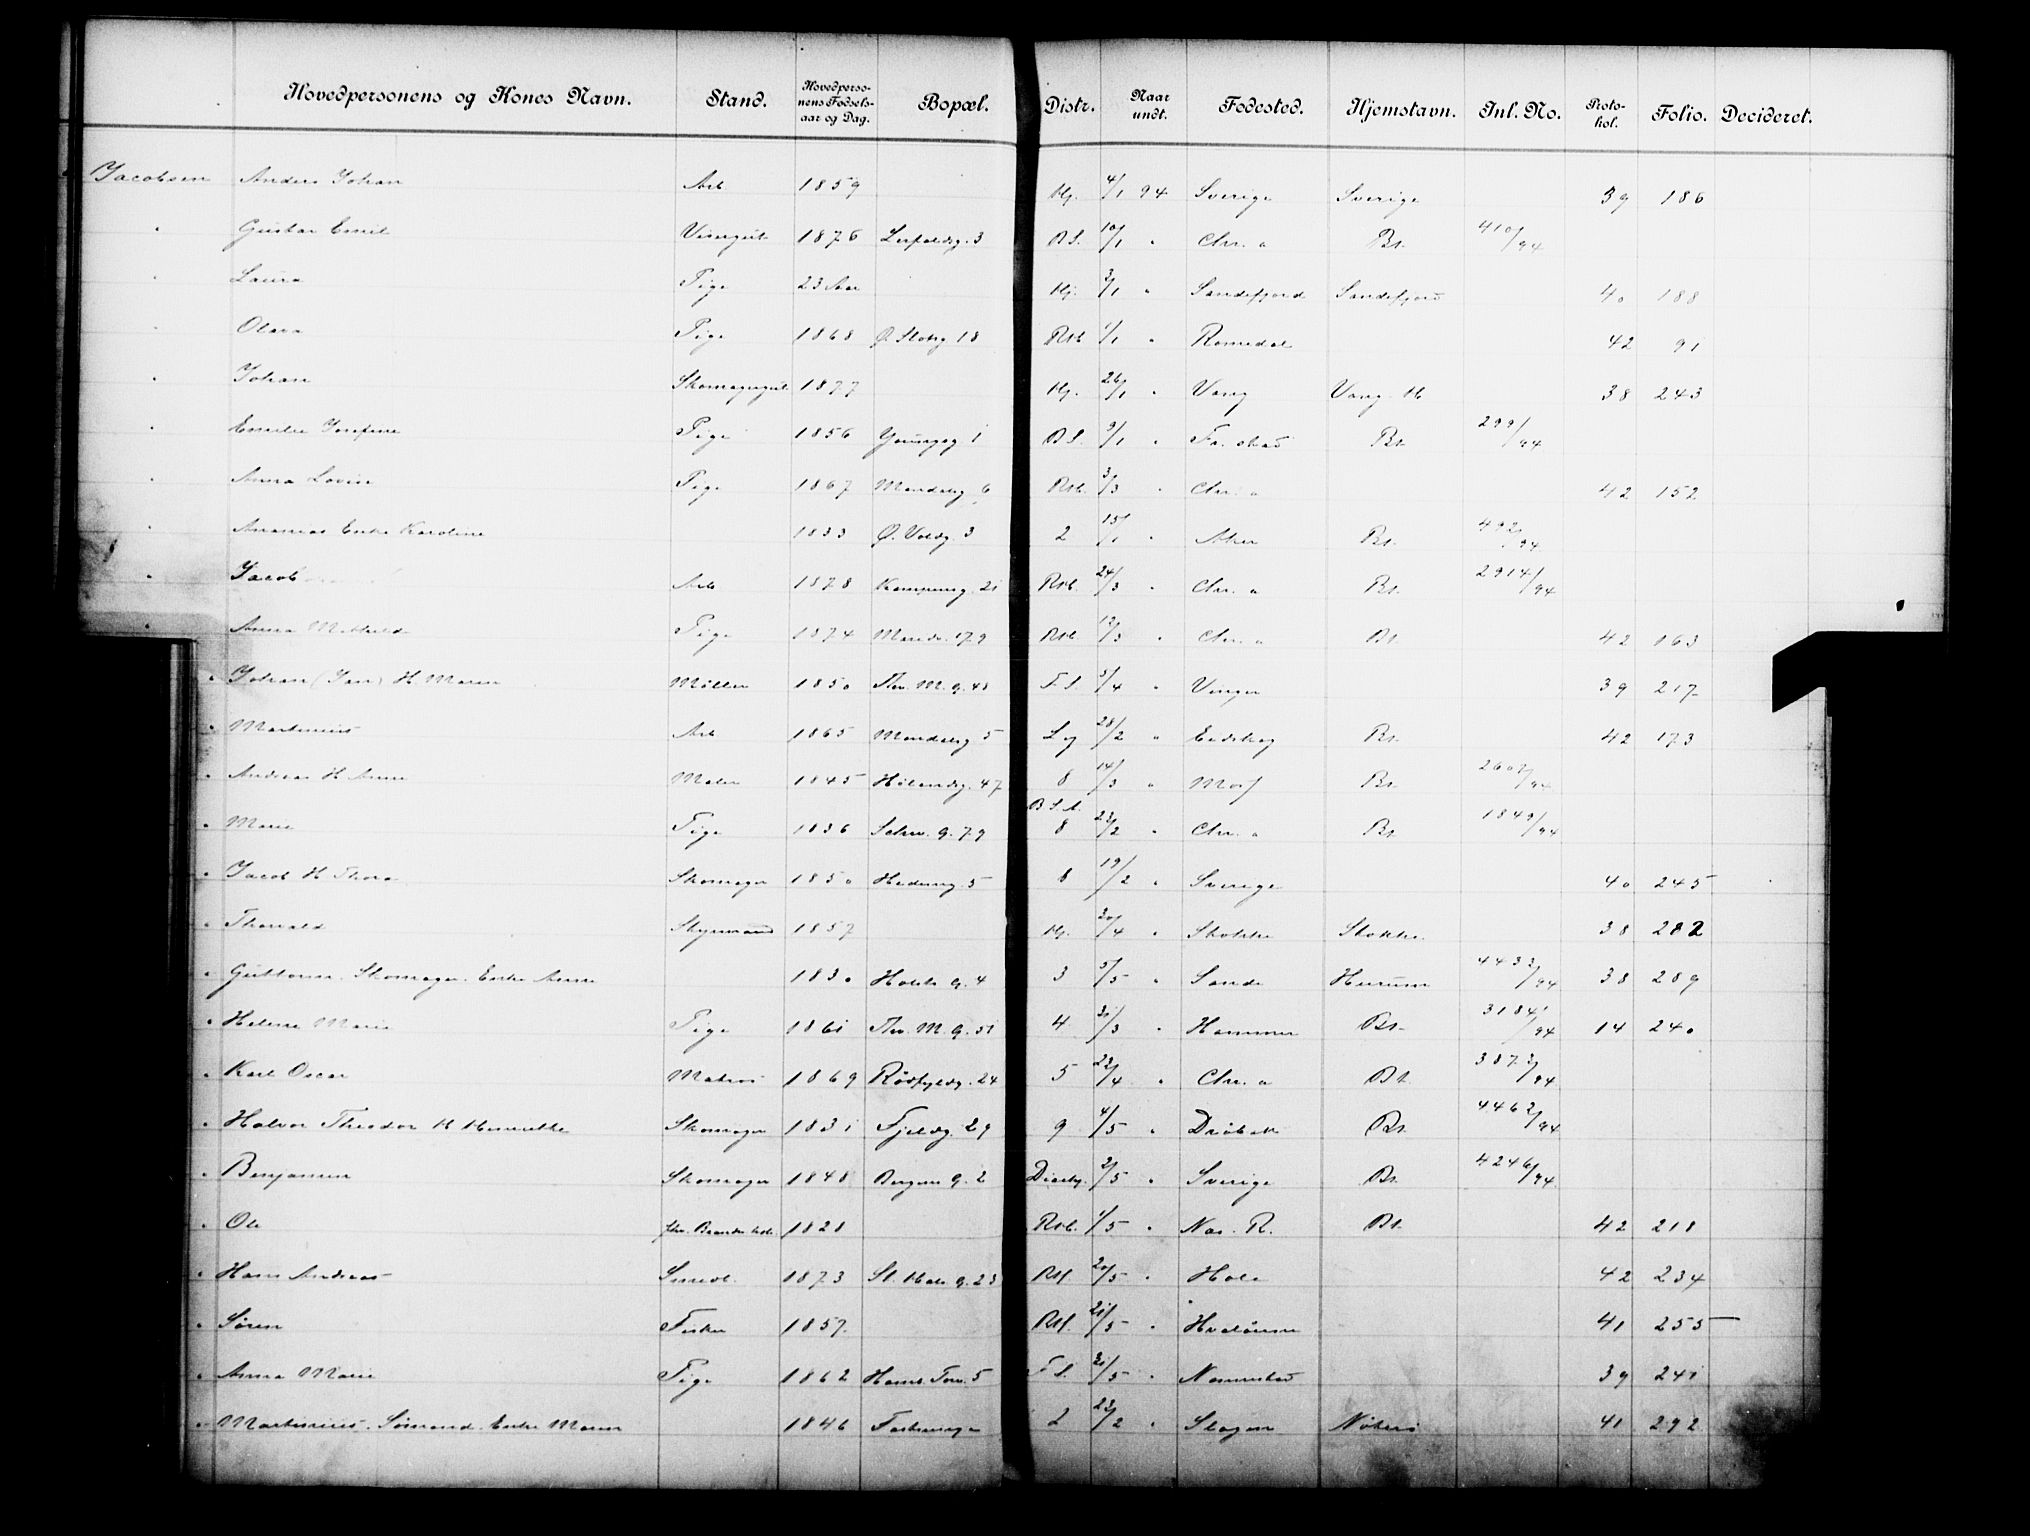 Hovedpersonens og Kones Navn. Stand. Hovedperso-nens Fødsels-aar og Dag. Bopæl. Distr. Naar undt. Fødested. Hjemstavn. Inl. No. Proto-kol. Folio. Decideret.
Jacobsen Anders Johan Arb 1859 Hj. 4/1 94 Sverige Sverige 39 186
" Gustav Emil Visergut 1876 3 B.S. 10/1 " Chr. a Bt. 410/94
" Laura Pige 23 Aar Hj. 3/1 " Sandefjord Sandefjord 40 188
" Olava Pige 1868 Ø. Slotsg 18 Rst. 1/1 " Romedal 42 91
" Johan Skomagergut 1877 Hj. 26/1 " Vang Vang. H 38 243
" Emilie Josefine Pige 1856 Youngsg 1 B.S. 9/1 " Fr. stad Bt. 299/94
" Anna Lovise Pige 1867 Mandalsg 6 Rst. 3/3 " Chr. a 42 152
" Andreas Enke Karoline 1833 Ø. Voldg. 3 2 15/1 " Aker Bt. 492/94
" Jacob Arb 1878 Kampensg. 21 Rst. 24/3 " Chr. a Bt. 2914/94
" Anna Mathilde Pige 1874 Maridv. 179 Rst. 12/3 " Chr. a Bt. 42 163
" Johan (Jan) H. Maren Møller 1850 Thv. M. g. 48 F.S. 5/4 " Vinger 39 217
" Martinius Arb 1865 Mandalsg 5 Lg 28/2 " Eidskog Bt. 42 173
" Andreas H Anne Maler 1845 Hølandsg. 47 8 14/3 " Moss Bt. 2602/94
" Marie Pige 1836 Schw. g. 79 B.S.A. 8 23/2 " Chr. a Bt. 1849/94
" Jacob H Thora Skomager 1850 Hedemg. 5 8 19/2 " Sverige 40 245
" Thorvald Styrmand 1857 Hj. 20/4 " Stokke Stokke. 38 282
" Guttorm. Skomager. Enke Anne 1830 Holsts g. 4 3 5/5 " Sande Hurum 4432/94 38 289
" Helene Marie Pige 1861 Thv. M. g. 51 4. 31/3 " Hammer Bt. 3184/94 14 240
" Karl Oscar Matros 1869 Rødfyldg. 24 5 23/4 " Chr. a Bt. 3873/94
" Halvor Theodor H Henriette Skomager 1831 Fjeldg. 29 9 4/5 " Drøbak Bt. 4462/94
" Benjamin Skomager 1848 Bergens g. 2 2/5 " Sverige Bt. 4246/94
" Ole 1828 Rst. 1/5 " Nas. R. Bt. 42 218
" Hans Andreas Smed 1873 St. Hals g. 23 Rst. 20/5 " Hole 42 234
" Søren Fisker 1857. Rst. 21/5 " Hvaløerne 41 255
" Anna Marie Pige 1862 Hans. Torv. 5 F.S. 31/5 " Nannestad 39 241
" Martinius. Sømand. Enke Maren 1846 2 23/2 " Slagen Nøterø 41 292